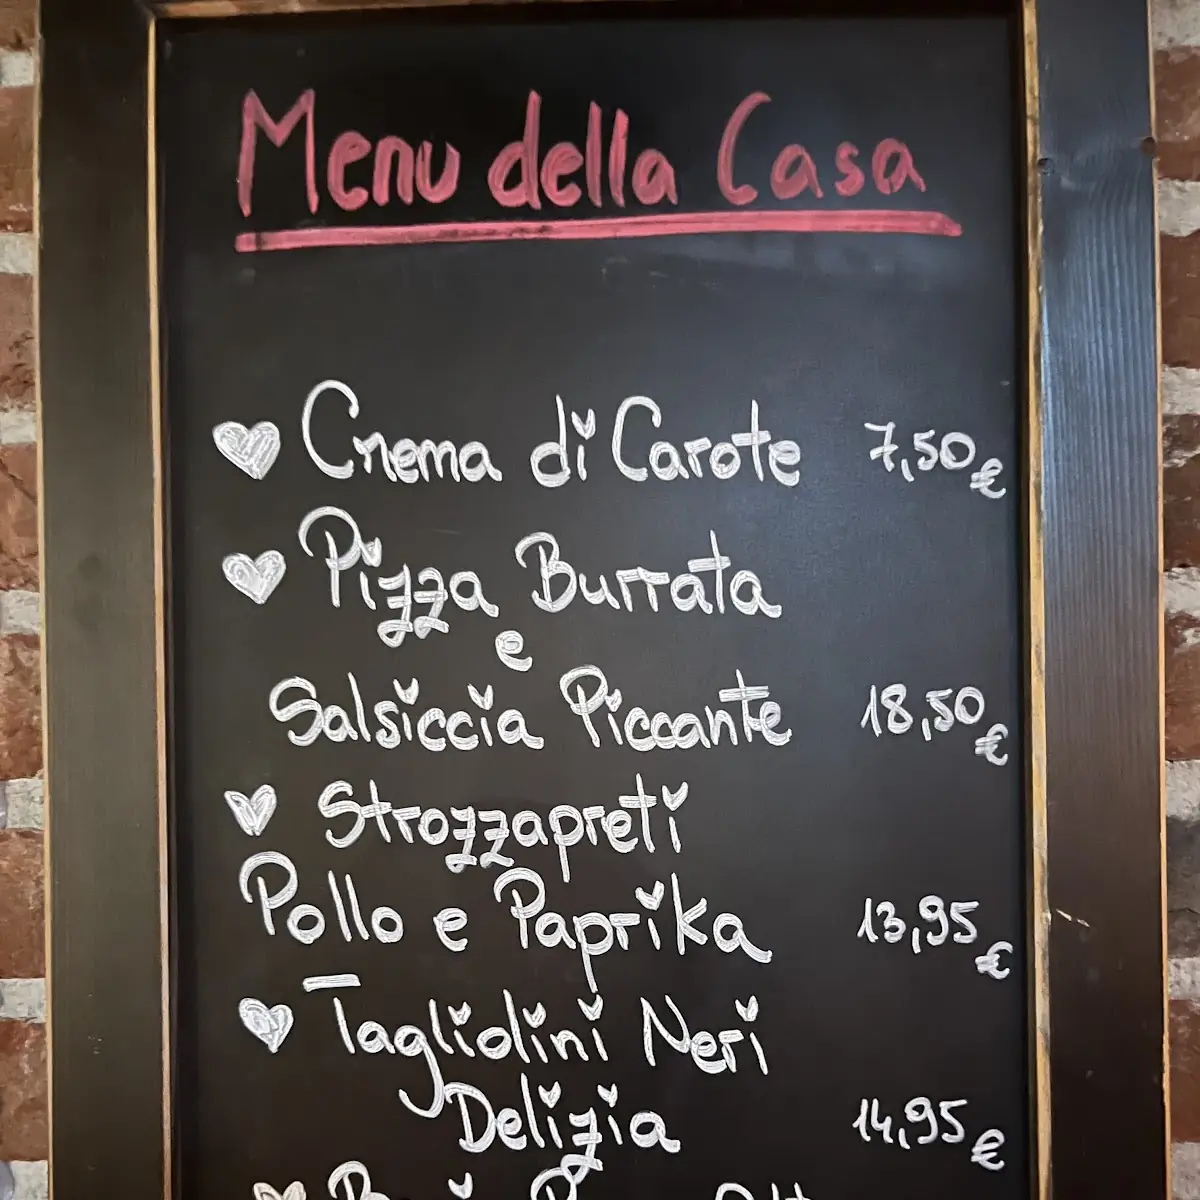 Menu della Casa
Crema di Carote 7,50 €
Pizza Burrata
e
Salsiccia Piccante 18,50 €
Strozzapreti
Pollo e Paprika 13,95 €
Tagliolini Neri
Delizia 14,95 €